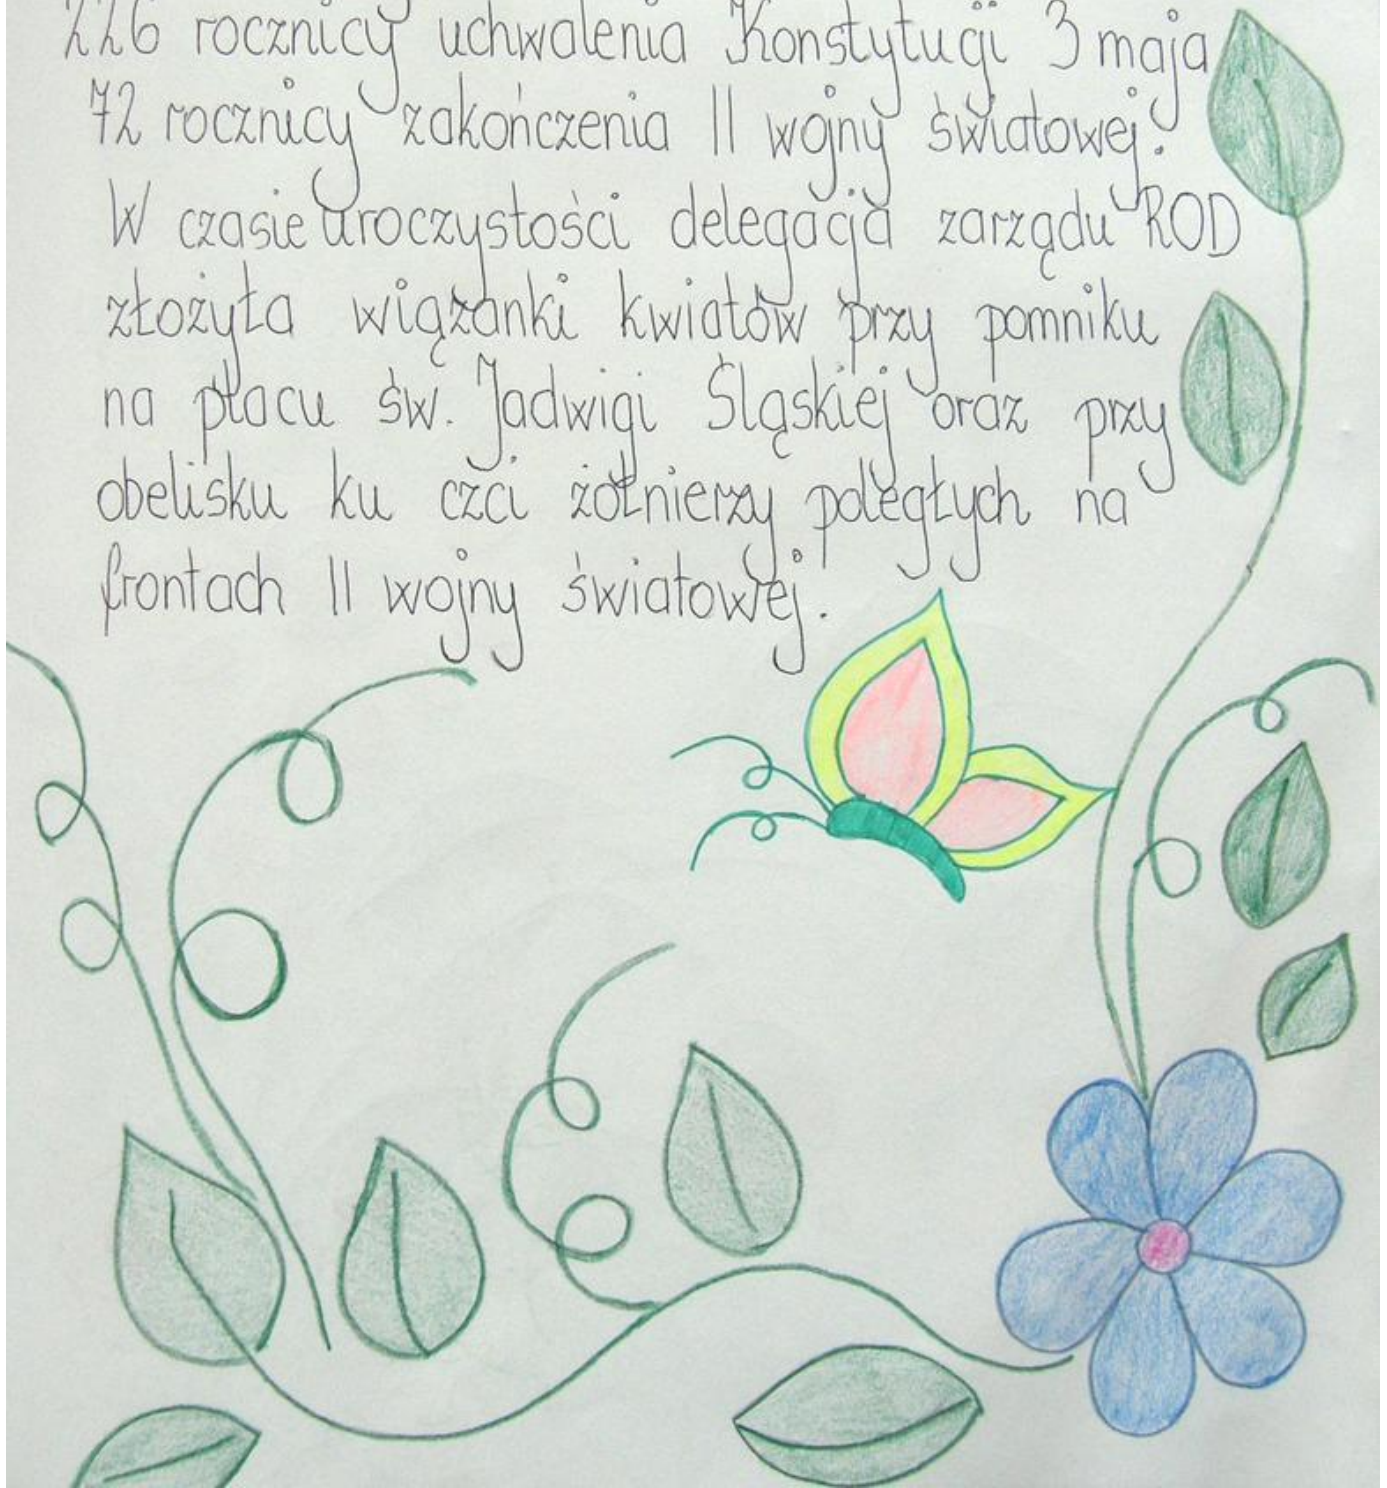 226 rocznicy uchwalenia Konstytucji 3 maja
72 rocznicy zakończenia II wojny światowej.
W czasie uroczystości delegacja zarządu ROD
złożyła wiązanki kwiatów przy pomniku
na placu św. Jadwigi Śląskiej oraz przy
obelisku ku czci żołnierzy poległych na
frontach II wojny światowej.